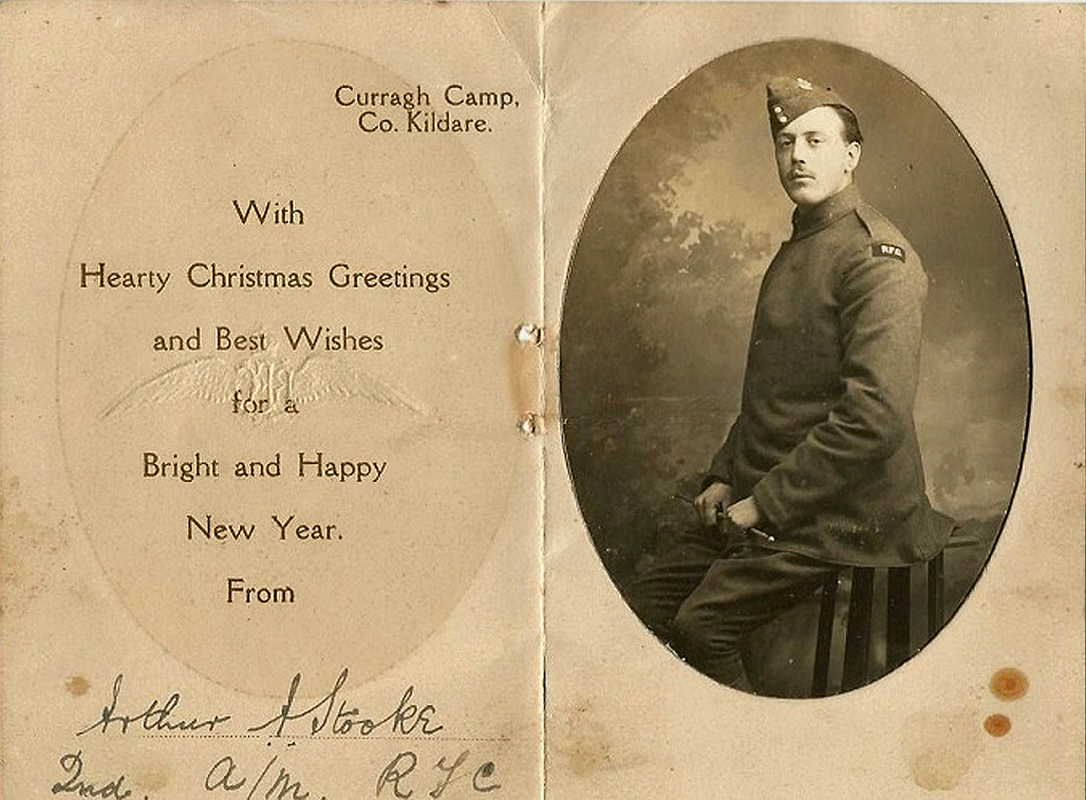 Curragh Camp,
Co. Kildare.
With
Hearty Christmas Greetings
and Best Wishes
for a
Bright and Happy
New Year.
From
Arthur A Stooke
2nd. A/M. R F C
R.F.C.